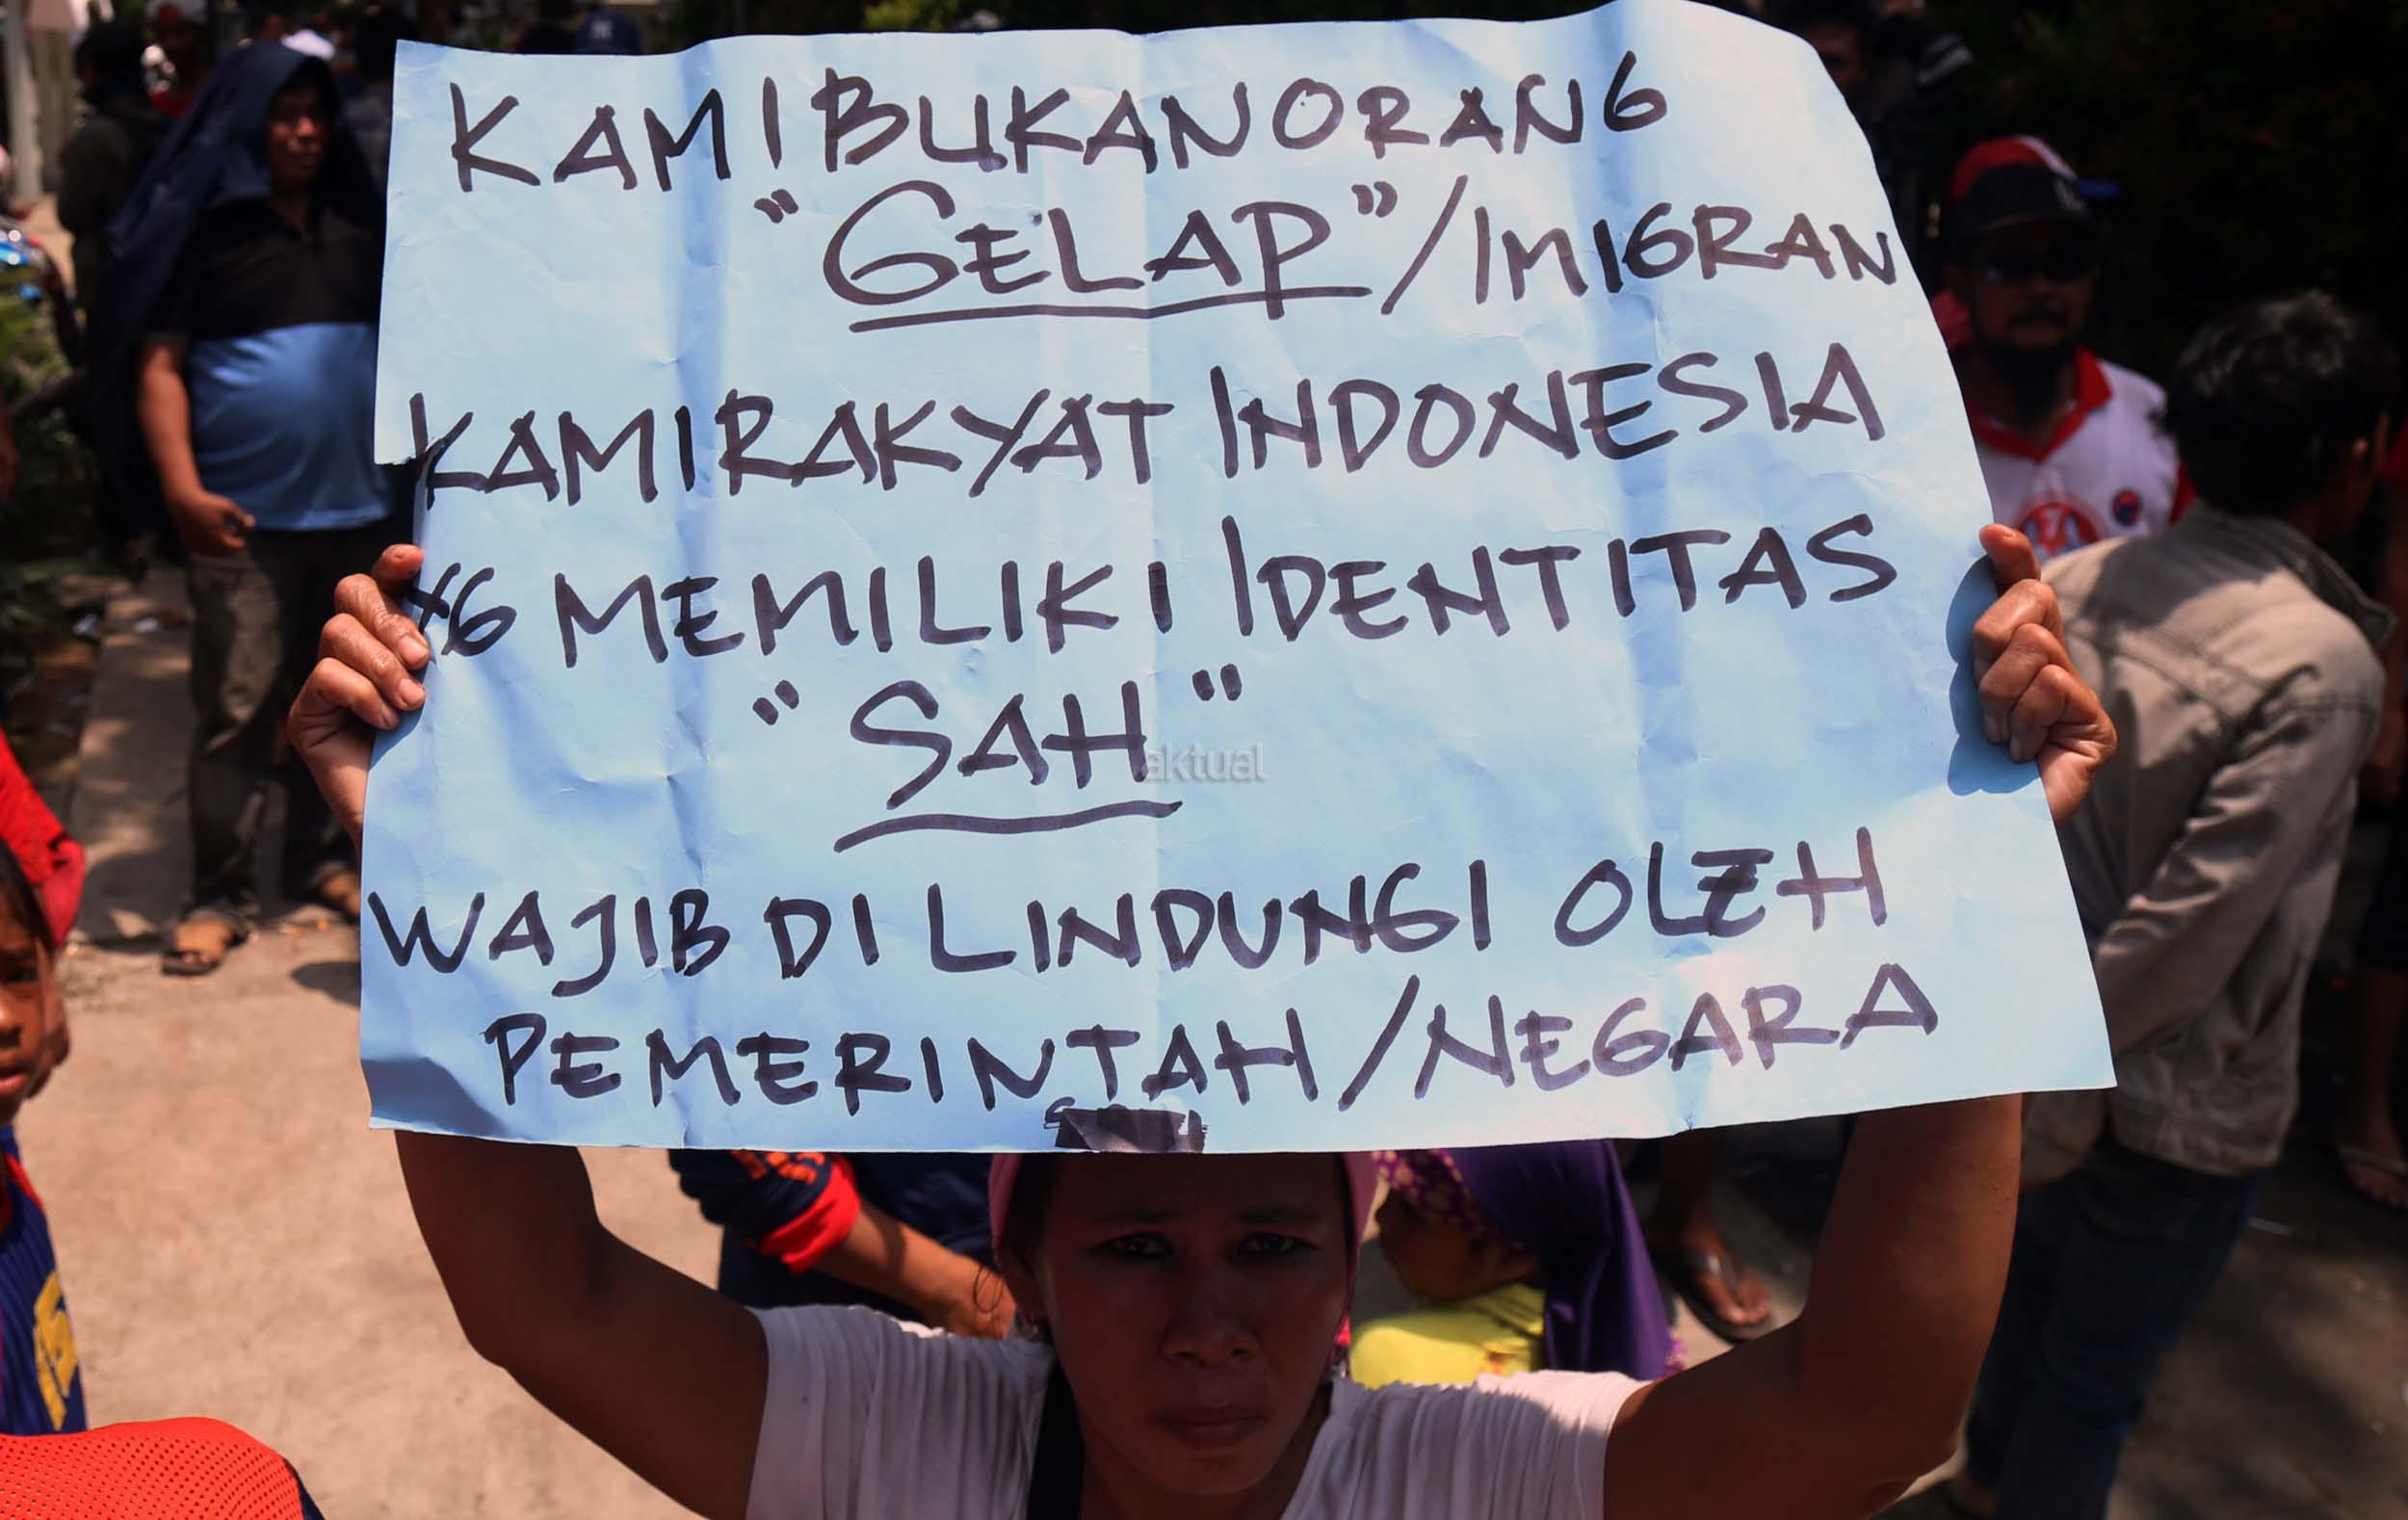 KAMI BUKAN ORANG
"GELAP"/IMIGRAN
KAMI RAKYAT INDONESIA
YG MEMILIKI IDENTITAS
"SAH"
aktual
WAJIB DI LINDUNGI OLEH
PEMERINTAH/NEGARA